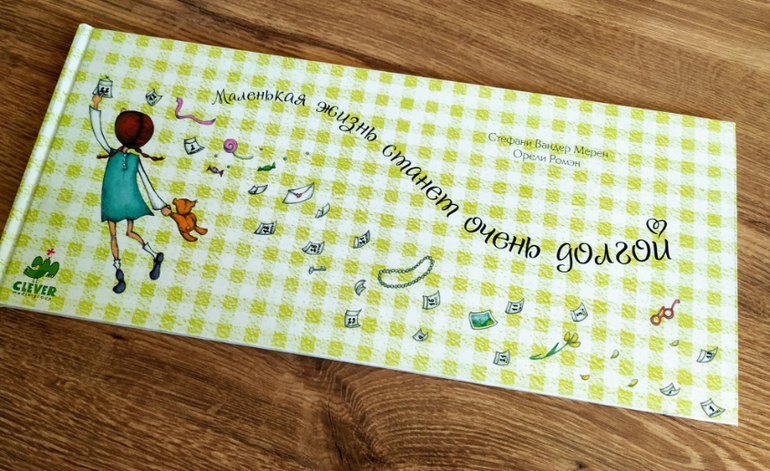 Маленькая жизнь станет очень долгой
Стефани Вандер Мерен
Орели Ромэн
CLEVER